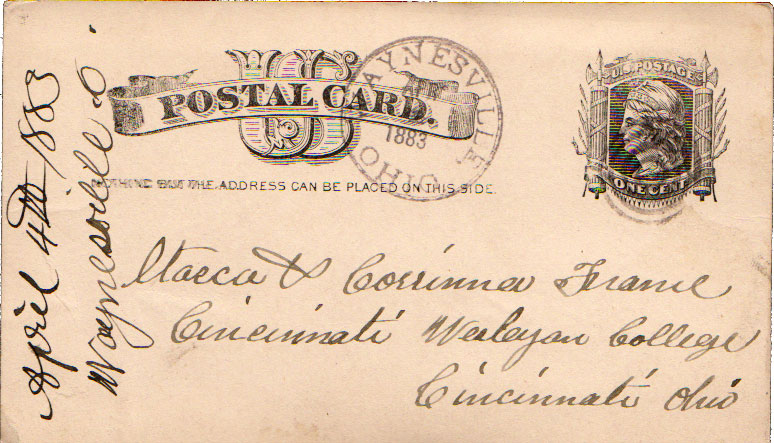 US
POSTAL CARD.
WAYNESVILLE
1883
OHIO
U.S. POSTAGE
ONE CENT
NOTHING BUT THE ADDRESS CAN BE PLACED ON THIS SIDE.
April 4th 1883
Waynesville O.
& Corrinna
Cincinnati Wesleyan College
Cincinnati Ohio